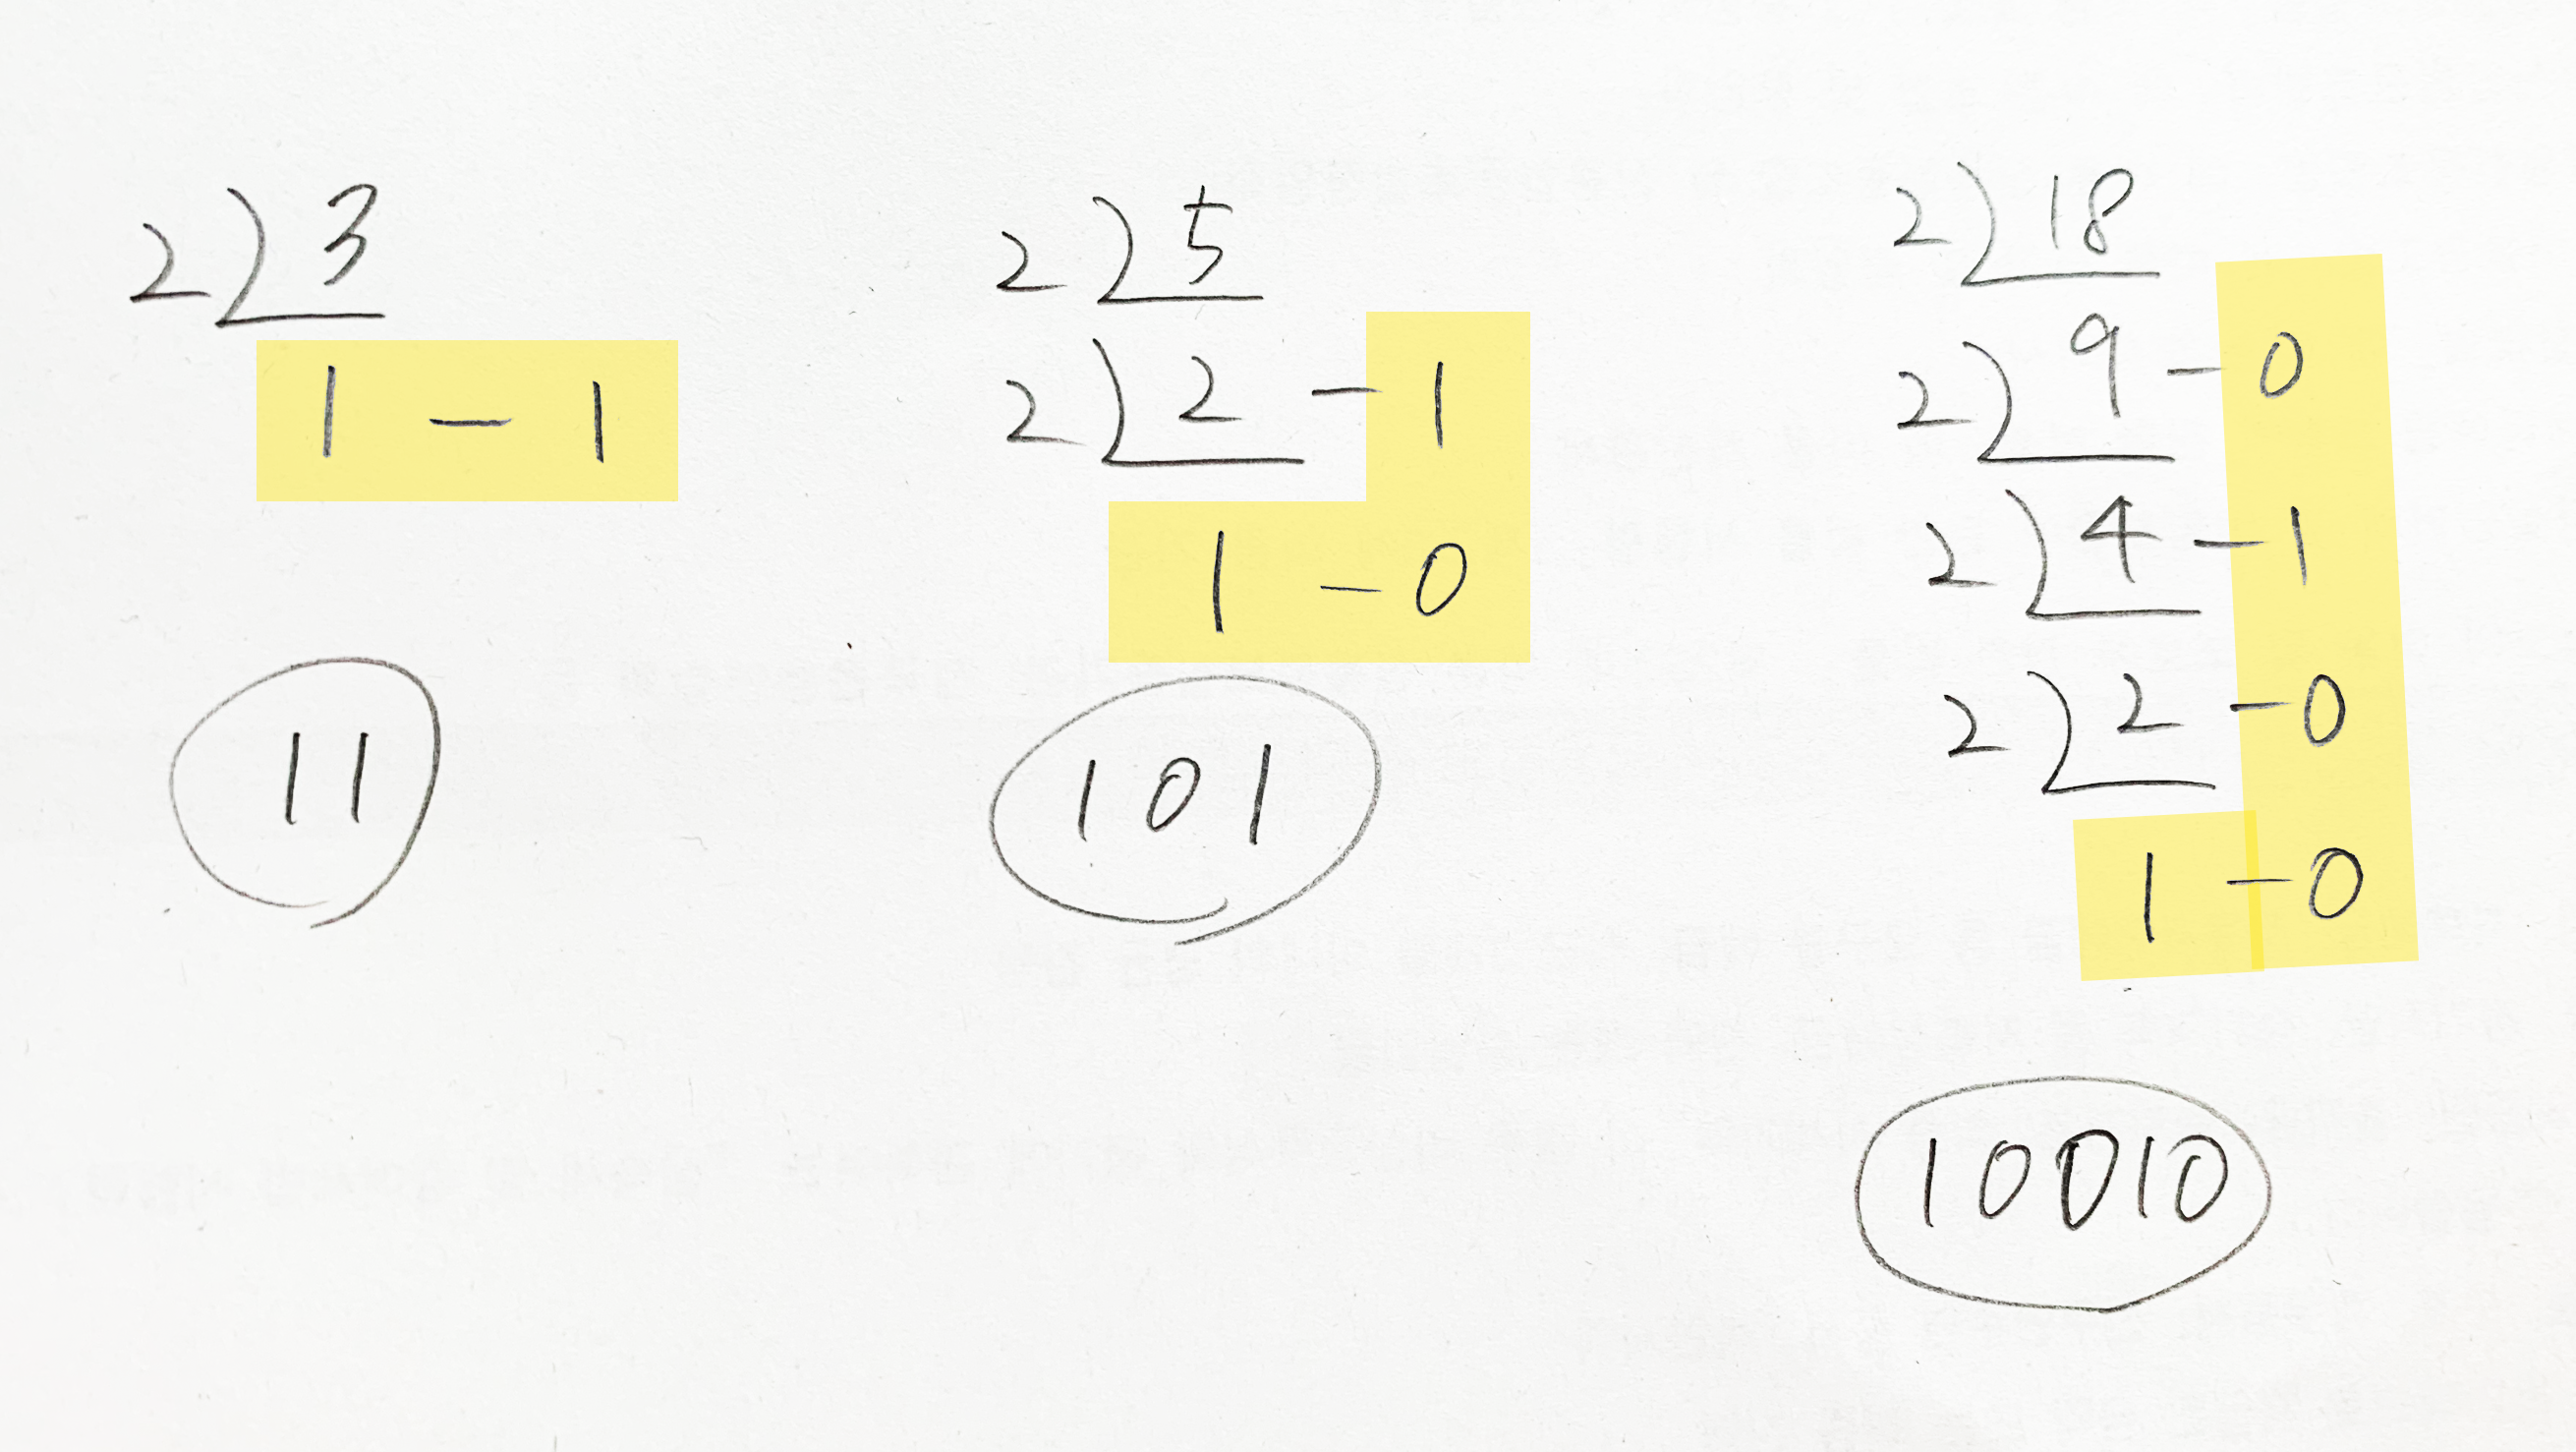 2)3
1 - 1
11
2)5
2)2 - 1
1 - 0
101
2)18
2)9 - 0
2)4 - 1
2)2 - 0
1 - 0
10010